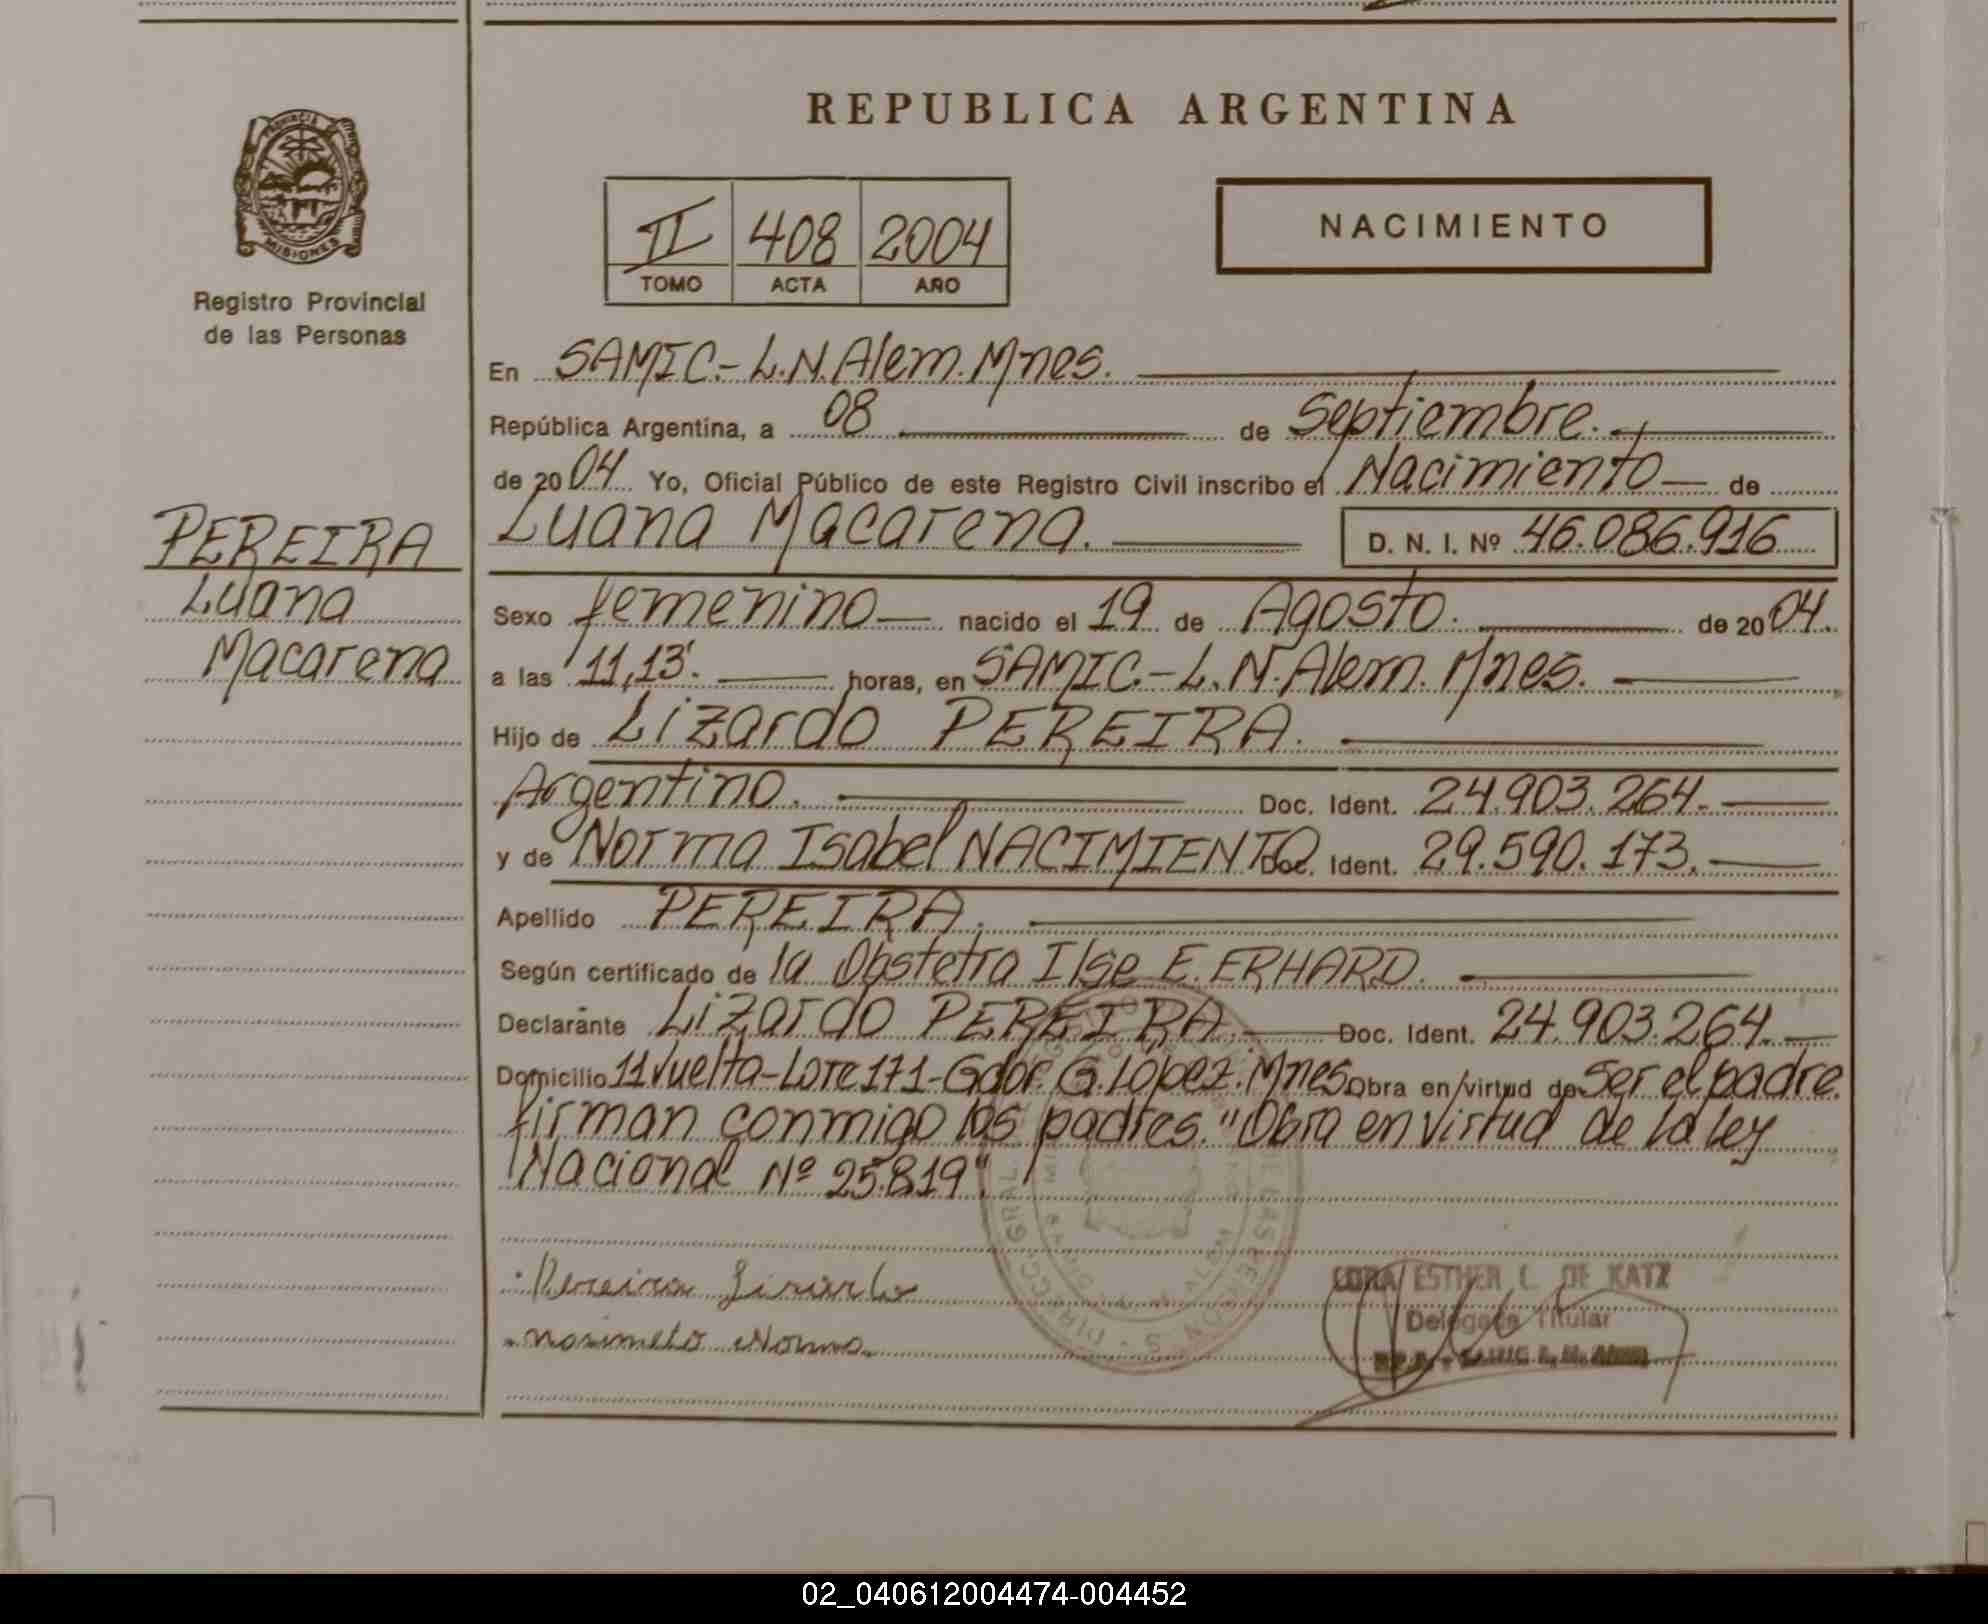 REPUBLICA ARGENTINA
PROVINCIA DE
MISIONES
Registro Provincial
de las Personas
II 408 2004
TOMO ACTA AÑO
NACIMIENTO
En SAMIC.- L.N.Alem. Mnes.
República Argentina, a 08 de Septiembre.
de 2004 Yo, Oficial Público de este Registro Civil inscribo el Nacimiento de
PEREIRA
Luana
Macarena
Luana Macarena. D. N. I. Nº 46.086.916
Sexo femenino nacido el 19 de Agosto. de 2004.
a las 11,13'. horas, en SAMIC.- L.N.Alem. Mnes.
Hijo de Lizardo PEREIRA.
Argentino. Doc. Ident. 24.903.264.
y de Norma Isabel NACIMIENTO Doc. Ident. 29.590.173.
Apellido PEREIRA.
Según certificado de la Obstetra Ilse E. ERHARD.
Declarante Lizardo PEREIRA. Doc. Ident. 24.903.264.
Domicilio 11 Vuelta-Lote 171-Gdor. G. López. Mnes. Obra en virtud de Ser el padre.
firman conmigo los padres. "Obra en virtud de la ley
Nacional Nº 25.819".
Pereira Lisardo
Norma
ESTHER L. DE KATZ
Delegada Titular
02_040612004474-004452